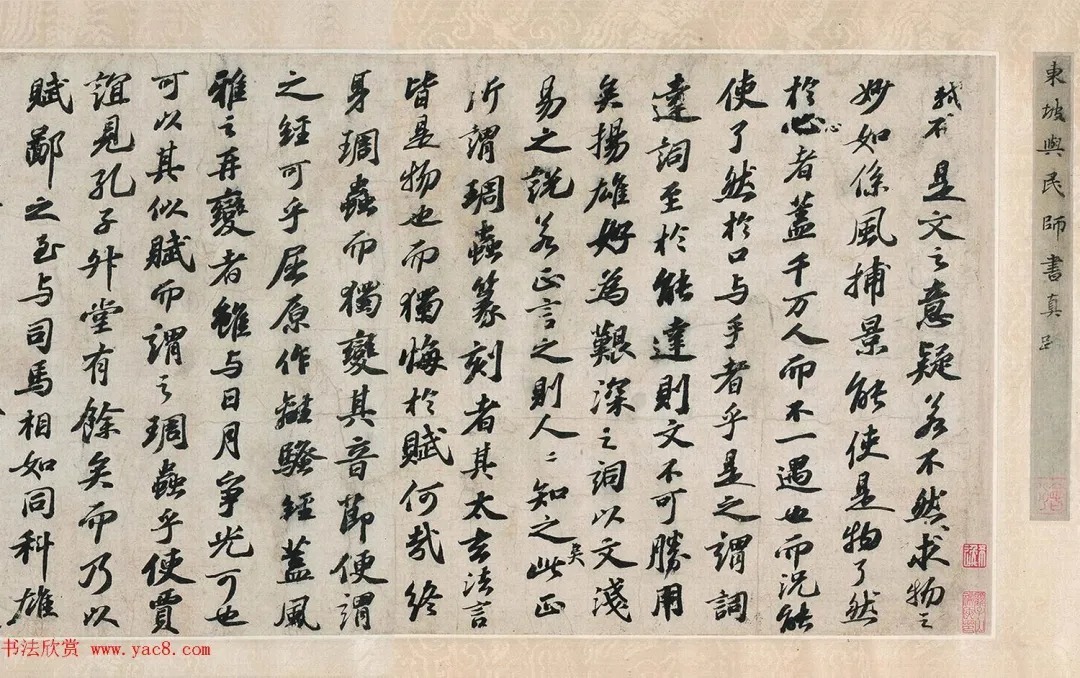 東坡與民師書真
軾不是文之意疑若不然求物之
妙如係風捕景能使是物了然
於心者蓋千万人而不一遇也而況能
使了然於口与手者乎是之謂詞
達詞至於能達則文不可勝用
矣揚雄好為艱深之詞以文淺
易之說若正言之則人〻知之矣此正
所謂琱蟲篆刻者其太玄法言
皆是物也而獨悔於賦何哉終
身琱蟲而獨變其音節便謂
之經可乎屈原作離騷經蓋風
雅之再變者雖与日月爭光可也
可以其似賦而謂之琱蟲乎使賈
誼見孔子升堂有餘矣而乃以
賦鄙之至与司馬相如同科雄
书法欣赏 www.yac8.com